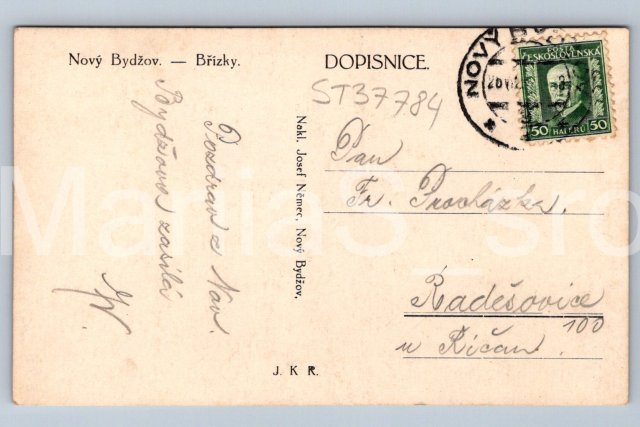 Nový Bydžov. — Břízky.
DOPISNICE.
ST37784
NOVÝ
POŠTA
ČESKOSLOVENSKÁ
50 HALÉŘŮ 50
Pan
Fr. Procházka.
Radešovice
100
u Říčan.
Pozdrav z Nov.
Bydžova zasílá
Nakl. Josef Němec, Nový Bydžov.
J. K R.
ManiaS_sro